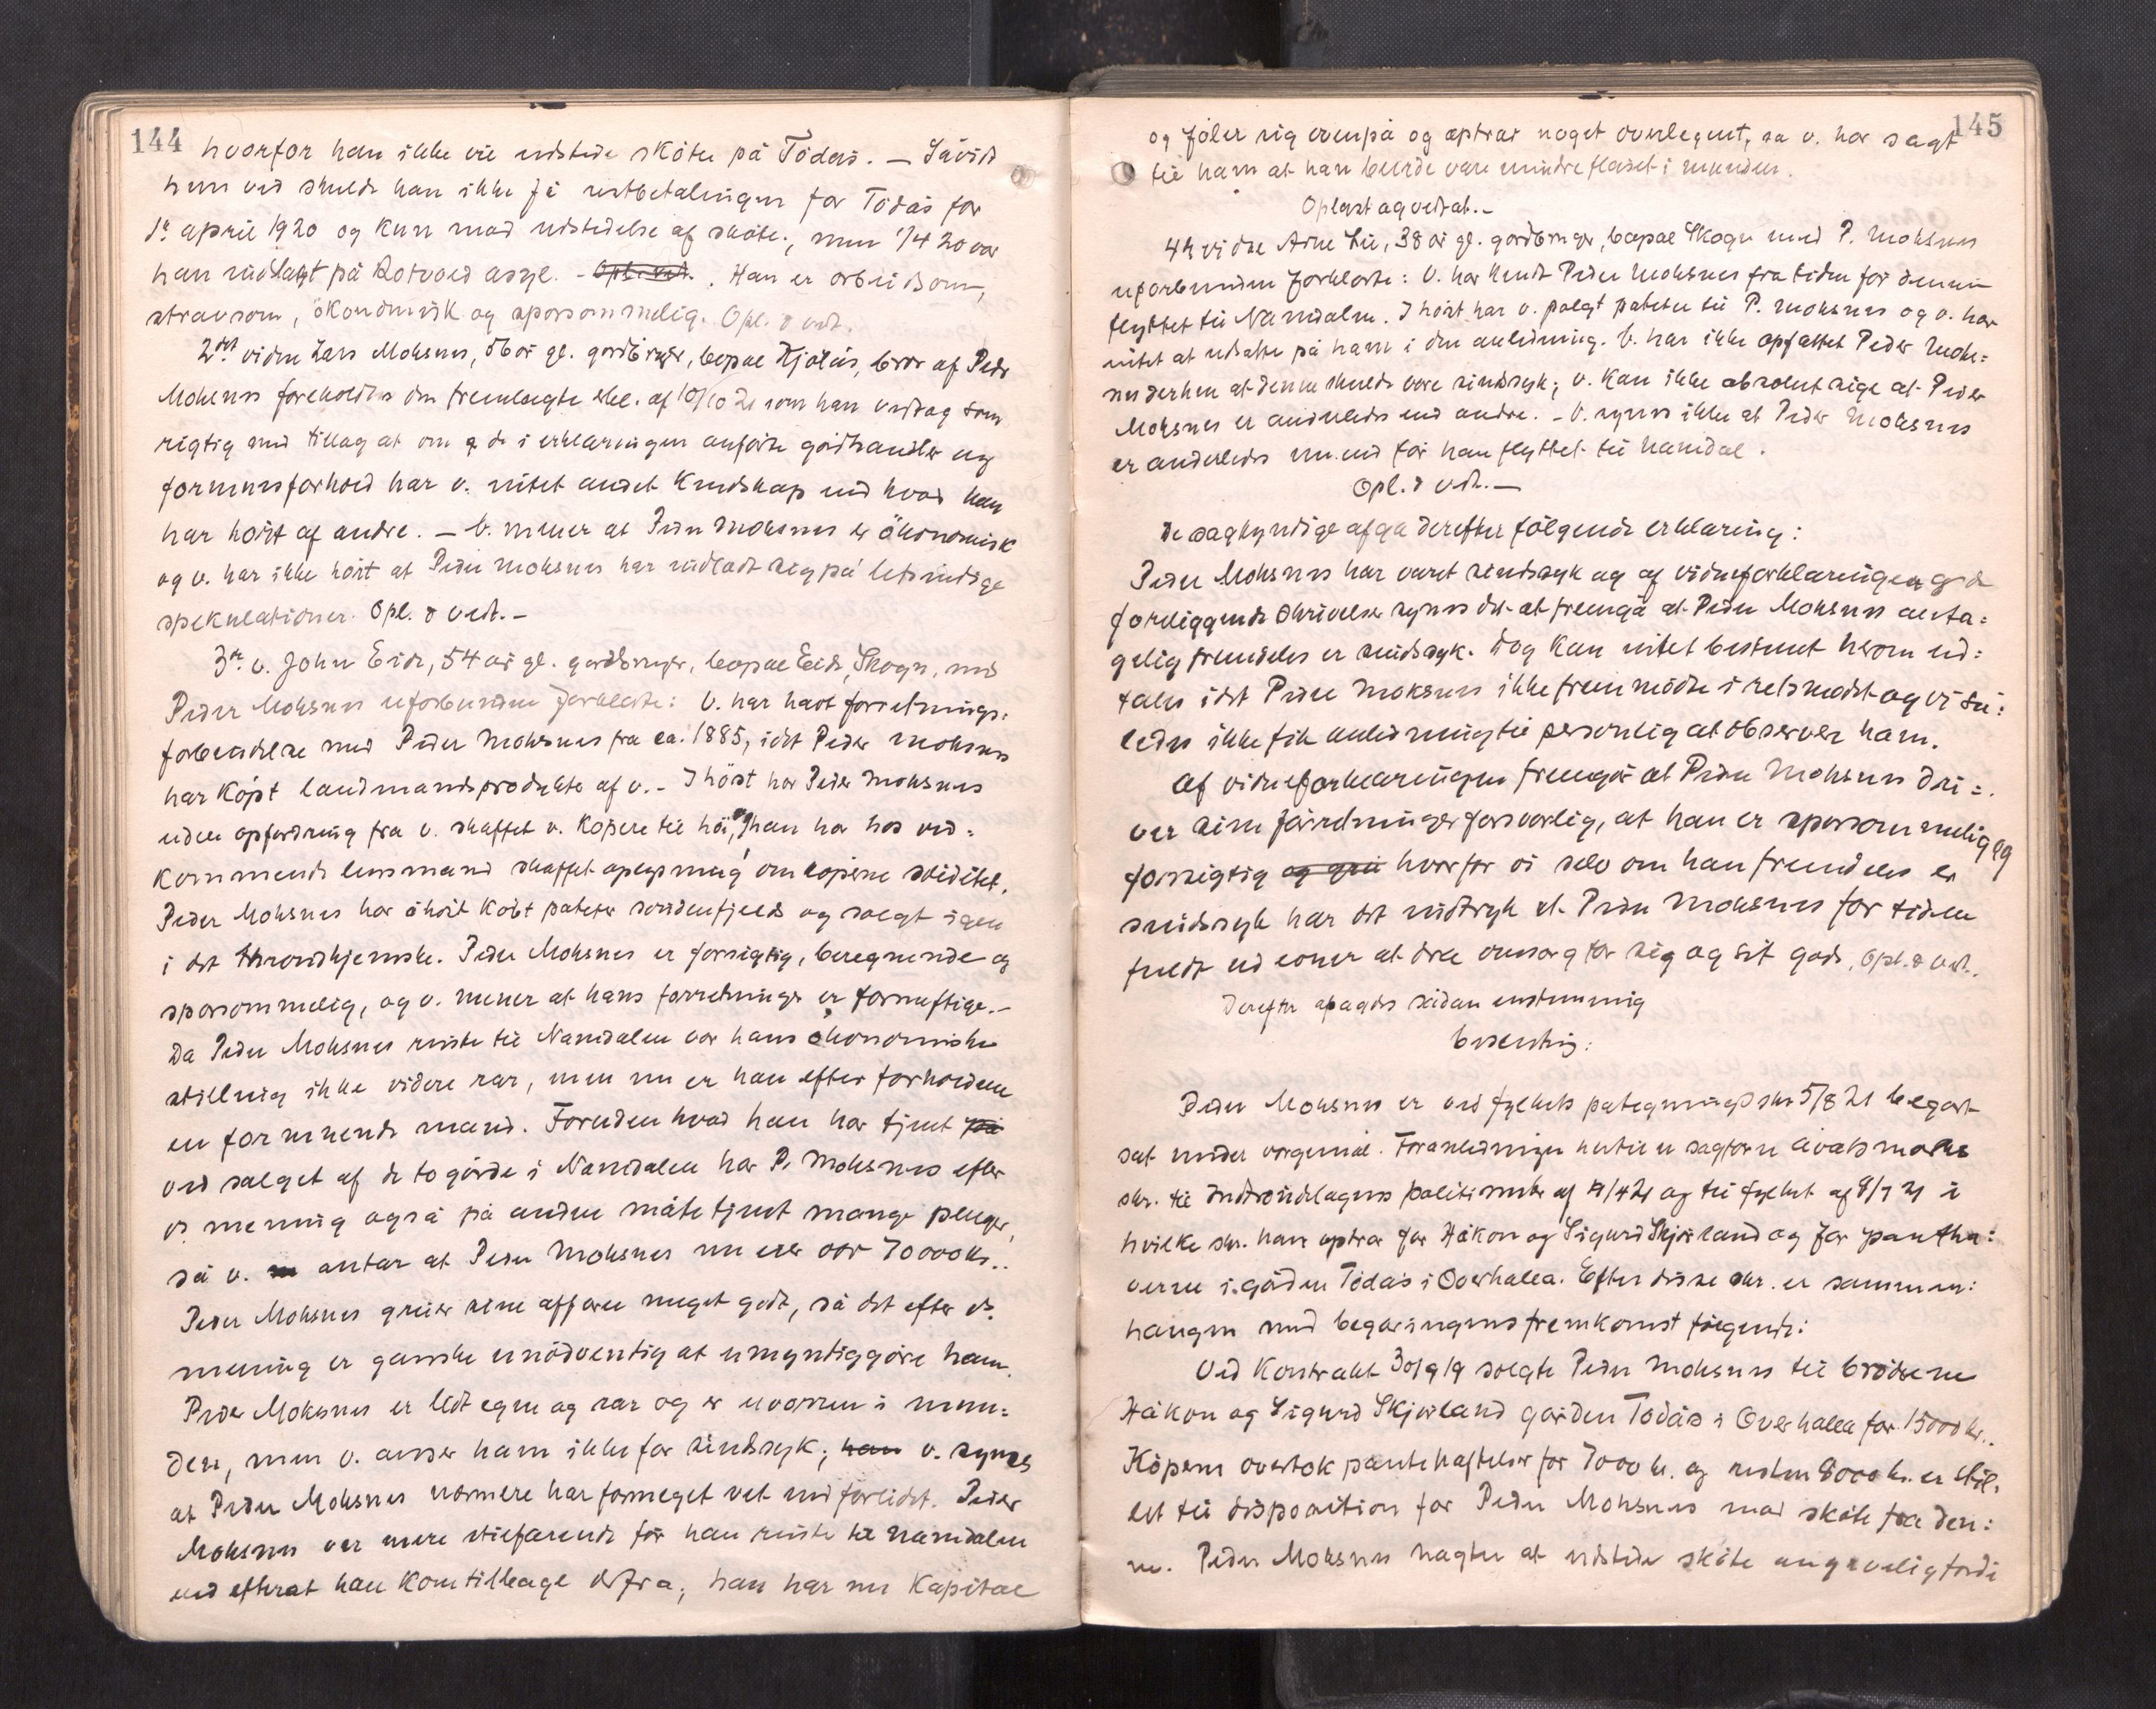 144
hvorfor han ikke vil utstede skøte på Tødås. — Såvidt
hun ved skulde han ikke få restbetalingen for Tødås før
1ste april 1920 og kun mod utstedelse af skøte; men 1/4 20 var
han indlagt på Rotvold asyl. - Opl. ved. . Han er arbeidsom,
stravsom, økonomisk og sparsommelig. Opl. & vedt.
2det vidne Lars Moksnes, år gl. gårdbruger, bopæl Hjelås, bror af Peder
Moksnes foreholdtes den fremlagte erkl. af 10/10 21 som han vedtog som
rigtig med tillæg at om de i erklæringen anførte gårdhandler og
formuesforhold har v. intet andet kendskap end hvad han
har hørt af andre. — V. mener at Peder Moksnes er økonomisk
og v. har ikke hørt at Peder Moksnes har indladt sig på letsindige
spekulationer. Opl. & vedt. -
3die v. John Eide, 54 år gl. gårdbruger, bopæl Eide, Skogn, med
Peder Moksnes uforbunden forklarte: V. har havt forretnings=
forbindelse med Peder Moksnes fra ca. 1885, idet Peder Moksnes
har køpt landmandsprodukter af v. - I høst har Peder Moksnes
uden opfordring fra v. skaffet v. køpere til høi, og han har hos ved=
kommende lensmand skaffet oplysning om køperne soliditet.
Peder Moksnes har i høst købt poteter søndenfjelds og solgt igen
i det throndhjemske. Peder Moksnes er forsigtig, beregnende og
sparsommelig, og v. mener at hans forretninger er fornuftige. -
Da Peder Moksnes reiste til Namdalen var hans økonomiske
stilling ikke videre rar, men nu er han efter forholdene
en formuende mand. Foruden hvad han har tjent på
ved salget af de to gårde i Namdalen har P. Moksnes efter
vs mening også på anden måte tjent mange penger,
så v. antar at Peder Moksnes nu eier over 70000 kr..
Peder Moksnes greier sine affærer meget godt, så det efter vs.
mening er ganske unødvendig at umyndiggøre ham.
Peder Moksnes er lidt egen og rar og er uvorren i mun=
den, men v. anser ham ikke for sindssyk; han v. synes
at Peder Moksnes nærmere har formeget vet end forlidet. Peder
Moksnes var mere stilfarende før han reiste til Namdalen
end efterat han kom tilbage derfra; han har nu kapital
145
og føler sig ovenpå og optrær noget overlegent, sa v. har sagt
til ham at han burde være mindre flaset i munden.
Oplæst og vedtat. -
4de vidne Arne Lie, 38 år gl. gårdbruger, bopæl Skogn med P. Moksnes
uforbunden forklarte: V. har kendt Peder Moksnes fra tiden før denne
flyttet til Namdalen. I høst har v. solgt poteter til P. Moksnes og v. har
intet at udsætte på ham i den anledning. V. har ikke opfattet Peder Moks=
nes derhen at denne skulde være sindssyk; v. kan ikke absolut sige at Peder
Moksnes er anderledes end andre. - V. synes ikke at Peder Moksnes
er anderledes nu end før han flyttet til Namdal.
Opl. & vedt. —
De sagkyndige afga derefter følgende erklæring:
Peder Moksnes har været sindssyk og af vidneforklaringen og de
foreliggende skrivelser synes det at fremgå at Peder Moksnes anta=
gelig fremdeles er sindssyk. Dog kan intet bestemt herom ud=
tales idet Peder Moksnes ikke fremmødte i retsmødet og vi så=
ledes ikke fik anledning til personlig at observere ham.
Af vidneforklaringen fremgår at Peder Moksnes dri=
ver sine forretninger forsvarlig, at han er sparsommelig og
forsigtig og grei hvorfor vi selv om han fremdeles er
sindssyk har det indtryk at Peder Moksnes for tiden
fuldt ud evner at dra omsorg for sig og sit gods. Opl. & vedt.
Derefter afsagdes sådan enstemmig
beslutning:
Peder Moksnes er ved fylkets påtegningsskr 5/8 21 begært
sat under vergemål. Foranledningen hertil er sagfører Livats Moxnes
skr. til Indtrøndelagens politimester af 4/21 og til fylket af 8/7 21 i
hvilke skr. han optrær for Håkon og Sigurd Skjørland og for pantha=
verne i gården Tødås i Overhalla. Efter disse skr. er sammen=
hængen med begæringens fremkomst følgende:
Ved kontrakt 30/9 19 solgte Peder Moksnes til brødrene
Håkon og Sigurd Skjørland gården Tødås i Overhalla for 15000 kr..
Køperne overtok pantehæftelser for 7000 kr. og resten 8000 kr. er stil=
let til disposition for Peder Moksnes mod skøte fra den=
ne. Peder Moksnes nægter at utstede skøte angivelig fordi